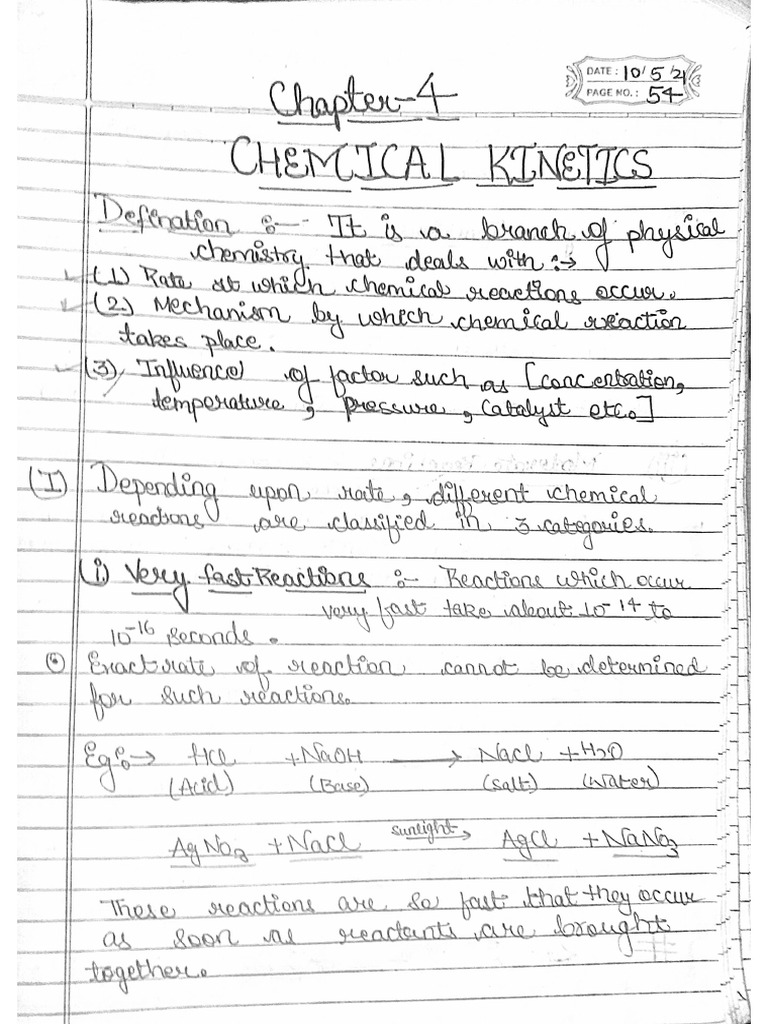 DATE: 10/5/21
PAGE NO.: 54
Chapter-4
CHEMICAL KINETICS
Defination :- It is a branch of physical
chemistry that deals with :→
(1) Rate at which chemical reactions occur.
(2.) Mechanism by which chemical reaction
takes place.
(3) Influence of factor such as [concentration,
temperature, pressure, Catalyst etc.]
(I) Depending upon rate, different chemical
reactions are classified in 3 categories.
(i.) Very fast Reactions :- Reactions which occur
very fast take about 10-14 to
10-16 seconds.
Exact rate of reaction cannot be determined
for such reactions.
Eg:→ HCl + NaOH → NaCl + H2O
(Acid) (Base) (Salt) (Water)
AgNO3 + NaCl sunlight→ AgCl + NaNO3
These reactions are so fast that they occur
as soon as reactants are brought
together.